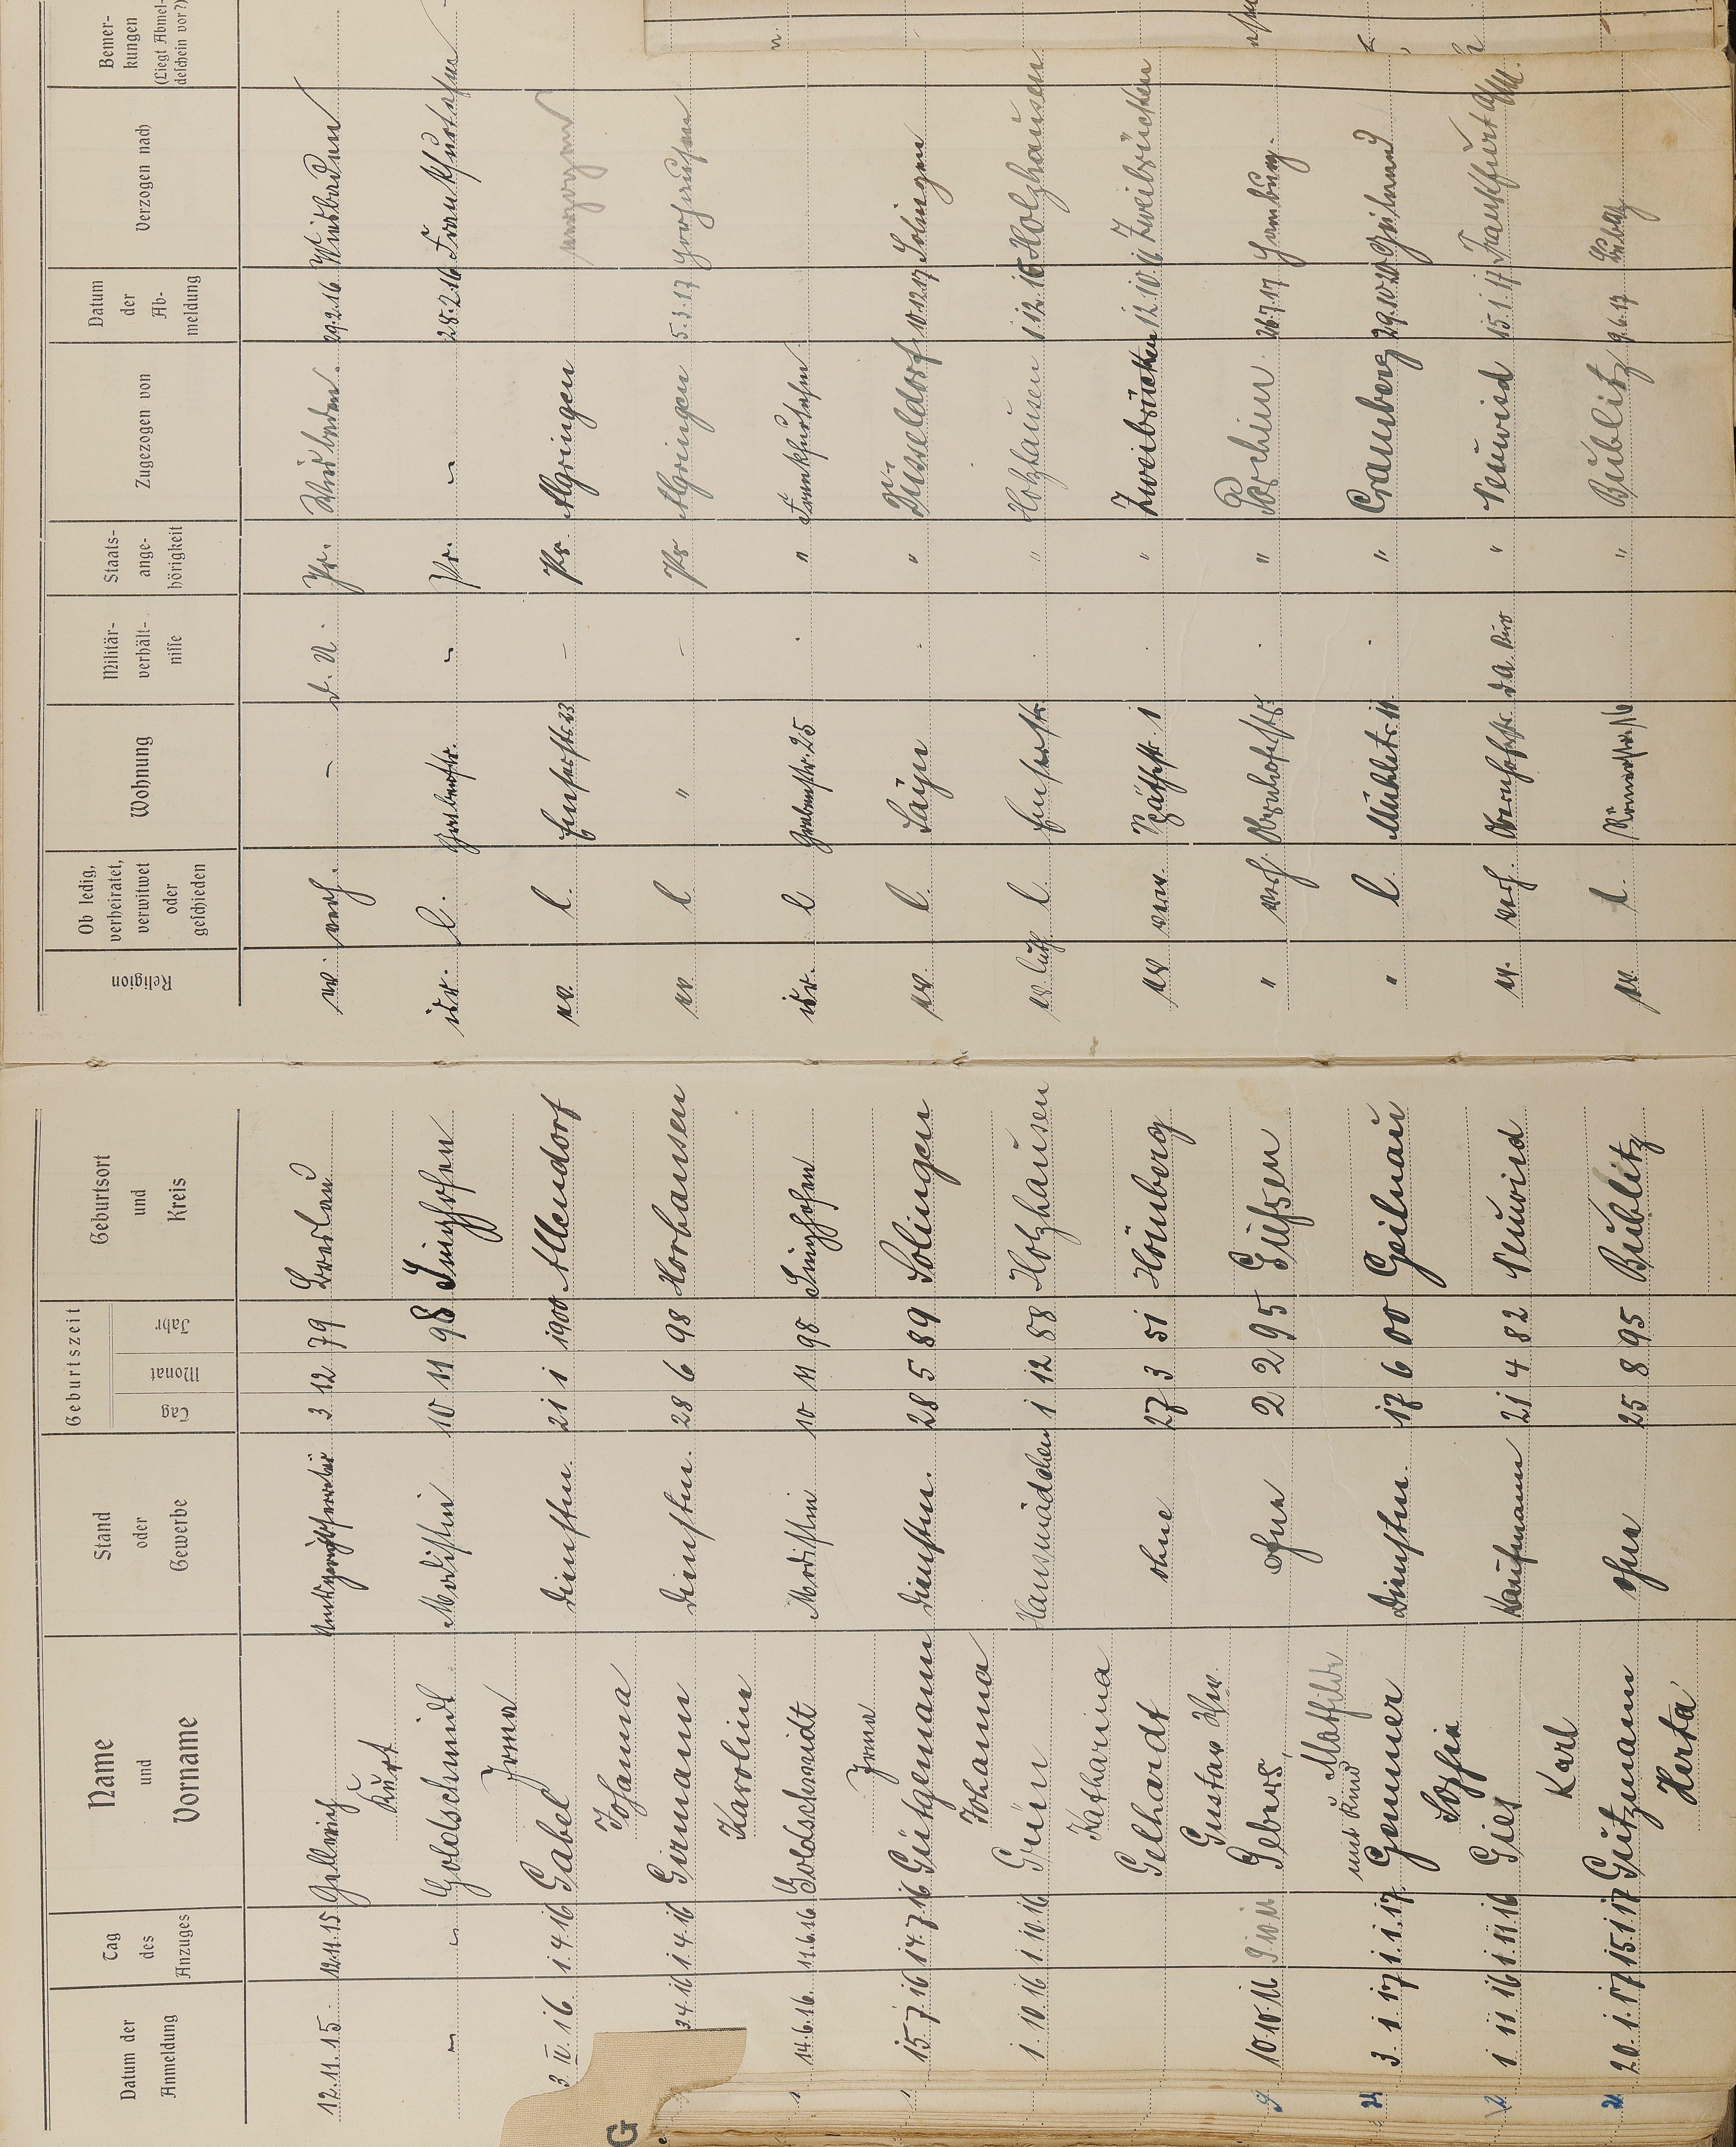 Datum der Anmeldung
Tag des Anzuges
Name und Vorname
Stand oder Gewerbe
Geburtszeit
Tag Monat Jahr
Geburtsort und Kreis
Religion
Ob ledig, verheiratet, verwitwet oder geschieden
Wohnung
Militär-verhält-nisse
Staats-ange-hörigkeit
Zugezogen von
Datum der Ab-meldung
Verzogen nach
Bemer-kungen (Liegt Abmel-deschein vor?)
12.11.15. 12.11.15 3 12 79 Breslau ev. verh. – d. U. Pr. Wiesbaden. 29.2.16 Wiesbaden
Kurt
Goldschmidt Modistin 10 11 98 Singhofen isr. l. Grabenstr. Pr. 28.2.16 Frankfurt
Irma
3 IV. 16 1 4 16 Gabel Dienstm. 21 1 1900 Allendorf ev. l. Emserstr. 23 – Pr. Algringen verzogen
Johanna
3.4.16 1 4 16 Girmann Dienstm. 28 6 98 Horhausen ev. l " – Pr Algringen 5.3.17 Horhausen
Karoline
14.6.16. 11.6.16. Goldschmidt Modistin 10 11 98 Singhofen isr. l Grabenstr. 25 "
Irma
15 7 16 14.7.16 Gütgemann Dienstm. 28 5 89 Solingen ev. l. Sayn " Düsseldorf 10.12.17 Solingen
Johanna
1. 10 16 1. 10. 16 Grün Hausmädchen 1 12 88 Holzhausen ev. luth. l. Emserstr. " Holzhausen 1 12 16 Holzhausen
Katharina
Gelhardt ohne 27 3 51 Hönberg ev verw. 1 " Zweibrücken 12.10.16 Zweibrücken
Gustav Ww.
9 10.10.16 9 10 16 Gebers, ohne 2 2 95 " verh. " Parchim 26.7.17 Hamburg.
mit Kind Mathilde
24 3. 1. 17 1. 1. 17. Gemmer Dienstm. 17 6 00 Geilnau " l. Mühlstr. 11. " Cramberg 29.10.20 Geilnau
Sophie
2 1 11 16 1. 11. 16 Gies Kaufmann 21 4 82 Neuwied ev. verh. " Neuwied 15.1.17 Frankfurt a/M.
Karl
21 20. 1. 17 15.1.17 Gützmann ohne 25 8 95 Bublitz ev. l. Römerstr. 16 " Bublitz 9.6.17
Herta
G